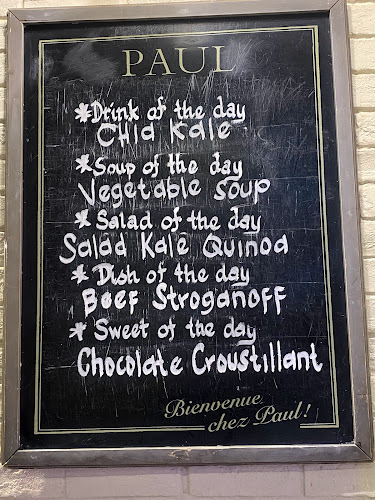 PAUL
*Drink of the day
Chia Kale
*Soup of the day
Vegetable soup
*Salad of the day
Salad Kale Quinoa
*Dish of the day
Beef Stroganoff
*Sweet of the day
Chocolate Croustillant
Bienvenue
chez Paul!